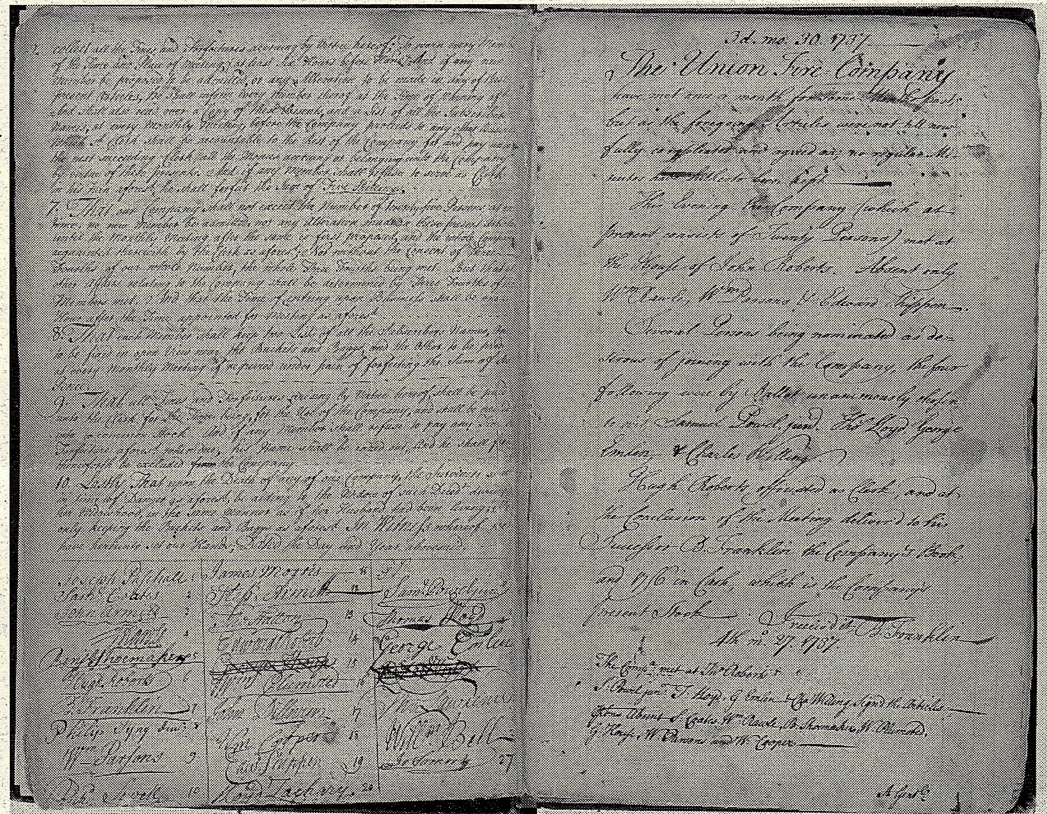 collect all the Fines and Forfeitures accruing by Virtue hereof; To warn every Member
of the Time and Place of Meeting, at least six Hours before Hand; And if any new
Member be proposed to be admitted, or any Alteration to be made in any of the
present Articles, he shall inform every Member thereof at the Time of Warning
And shall also read over a Copy of these Presents, and a List of all the Subscribers
Names, at every Monthly Meeting, before the Company proceeds to any other Business
Which Clerk shall be accountable to the Rest of the Company for and pay
the next succeeding Clerk all the Monies accruing or belonging unto the Company
by virtue of these presents. And if any member shall refuse to serve as Clerk
in his turn aforesd. he shall forfeit the Sum of Five Shillings.
7. That our Company shall not exceed the Number of twenty five Persons at a
time, no new Member be admitted, nor any alteration made in these present Articles
until the Monthly Meeting after the same is first proposed, and the whole Company
acquainted therewith by the Clerk as aforesd; Nor without the Consent of Three
Fourths of our whole Number, the whole Three Fourths being met. But that
other affairs relating to the Company shall be determined by Three Fourths of
Members met. And that the Time of entring upon Business shall be one
Hour after the Time appointed for Meeting as aforesd.
8. That each Member shall keep two Lists of all the Subscribers Names, one
to be fixed in open View near the Buckets and Baggs, and the other to be produced
at every Monthly Meeting if required under pain of forfeiting the Sum of
Pence.
9. That all Fines and Forfeitures arising by Virtue hereof, shall be paid
unto the Clerk for the Time being, for the Use of the Company, and shall be
into a common Stock. And if any Member shall refuse to pay any Fine
Forfeiture aforesd when due, his Name shall be razed out, And he shall
thenceforth be excluded from the Company
10. Lastly That upon the Death of any of our Company, the Survivors
in time of Danger as aforesd, be aiding to the Widow of such Decedt during
her Widowhood in the same Manner as if her Husband had been living;
only keeping the Buckets and Baggs as aforesd. In Witness whereof
have hereunto set our Hands; Dated the Day and Year abovesd.
Joseph Paschall 1
Saml Coates 2
John Armitt 3
4
Benj Shoemaker 5
Hugh Roberts 6
B Franklin 7
Philip Syng Junr 8
Wm Parsons 9
10
James Morris 11
Stepn Armitt 12
13
Edward 14
15
Wm Plumsted 16
17
Wm Cooper 18
Edwd Shippen 19
Lloyd Zachary 20
Saml Powel junr
Thomas Lloyd
George Emlen
Bell
27
3d. mo. 30. 1737
The Union Fire Company
have met once a month for some time past
but as the foregoing Articles were not till now
fully compleated and agreed on, no regular Mi-
nutes have hitherto been kept.
This Evening the Company (which at
present consists of Twenty Persons) met at
the House of John Roberts. Absent only
Wm Rawle, Wm Parsons & Edward Shippen.
Several Persons being nominated as de-
sirous of joining with the Company, the four
following were by Ballot unanimously chosen
to wit Samuel Powel junr. Tho. Lloyd George
Emlen & Charles Willing
Hugh Roberts officiated as Clerk, and at
the Conclusion of the Meeting delivered to his
Successor B Franklin the Company's Book,
and 17/6 in Cash, which is the Company's
present Stock
B Franklin
4th mo. 27. 1737
The Compa. met at Tho Roberts's
S Powel junr T Lloyd, G Emlen Cha Willing Sign'd the Articles
Absent S Coates Wm Rawle, B Shoemaker, W Plumsted,
G House, W Parsons and W Cooper